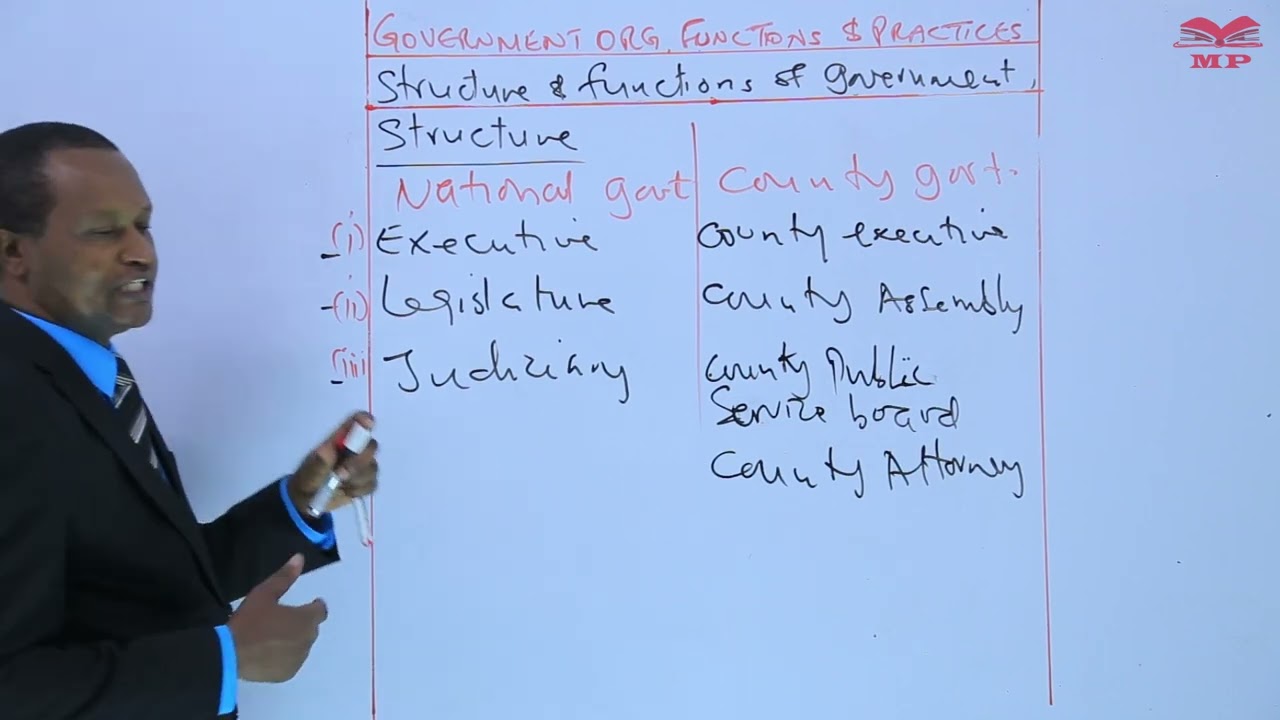 GOVERNMENT ORG, FUNCTIONS & PRACTICES
MP
Structure & functions of government,
Structure
National govt County govt.
(i) Executive County executive
(ii) Legislature County Assembly
(iii) Judiciary County Public
Service board
County Attorney